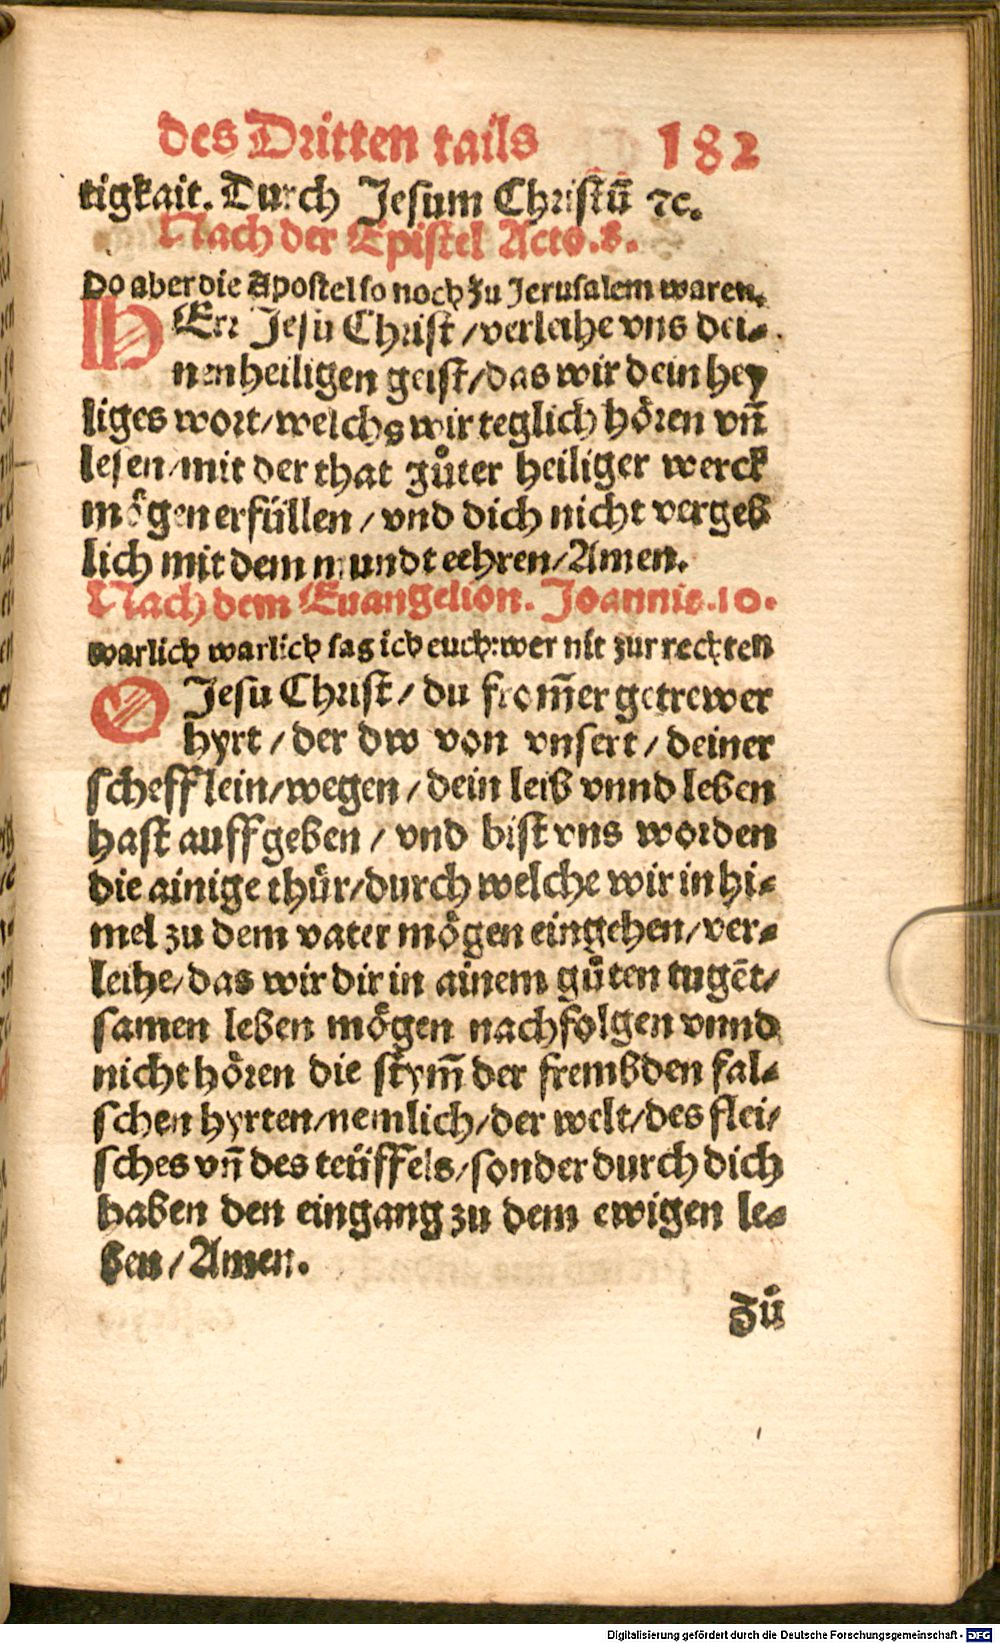 des Dritten tails 182
tigkait. Durch Jesum Christū ⁊c.
Nach der Epistel Acto. 8.
Do aber die Apostel so noch zu Jerusalem waren.
HErr Jesu Christ / verleihe vns dei-
nen heiligen geist / das wir dein hey
liges wort / welchs wir teglich hören vñ
lesen / mit der that gůter heiliger werck
mögen erfüllen / vnd dich nicht vergeb
lich mit dem mundt eehren / Amen.
Nach dem Euangelion. Joannis. 10.
warlich warlich sag ich euch: wer nit zur rechten
O Jesu Christ / du from̄er getrewer
hyrt / der dw von vnsert / deiner
schefflein / wegen / dein leib vnnd leben
hast auffgeben / vnd bist vns worden
die ainige thür / durch welche wir in hi-
mel zu dem vater mögen eingehen / ver-
leihe / das wir dir in ainem gůten tugēt /
samen leben mögen nachfolgen vnnd
nicht hören die stym̄ der frembden fal-
schen hyrten / nemlich / der welt / des flei /
sches vñ des teüffels / sonder durch dich
haben den eingang zu dem ewigen le-
ben / Amen.
Zů
Digitalisierung gefördert durch die Deutsche Forschungsgemeinschaft - DFG